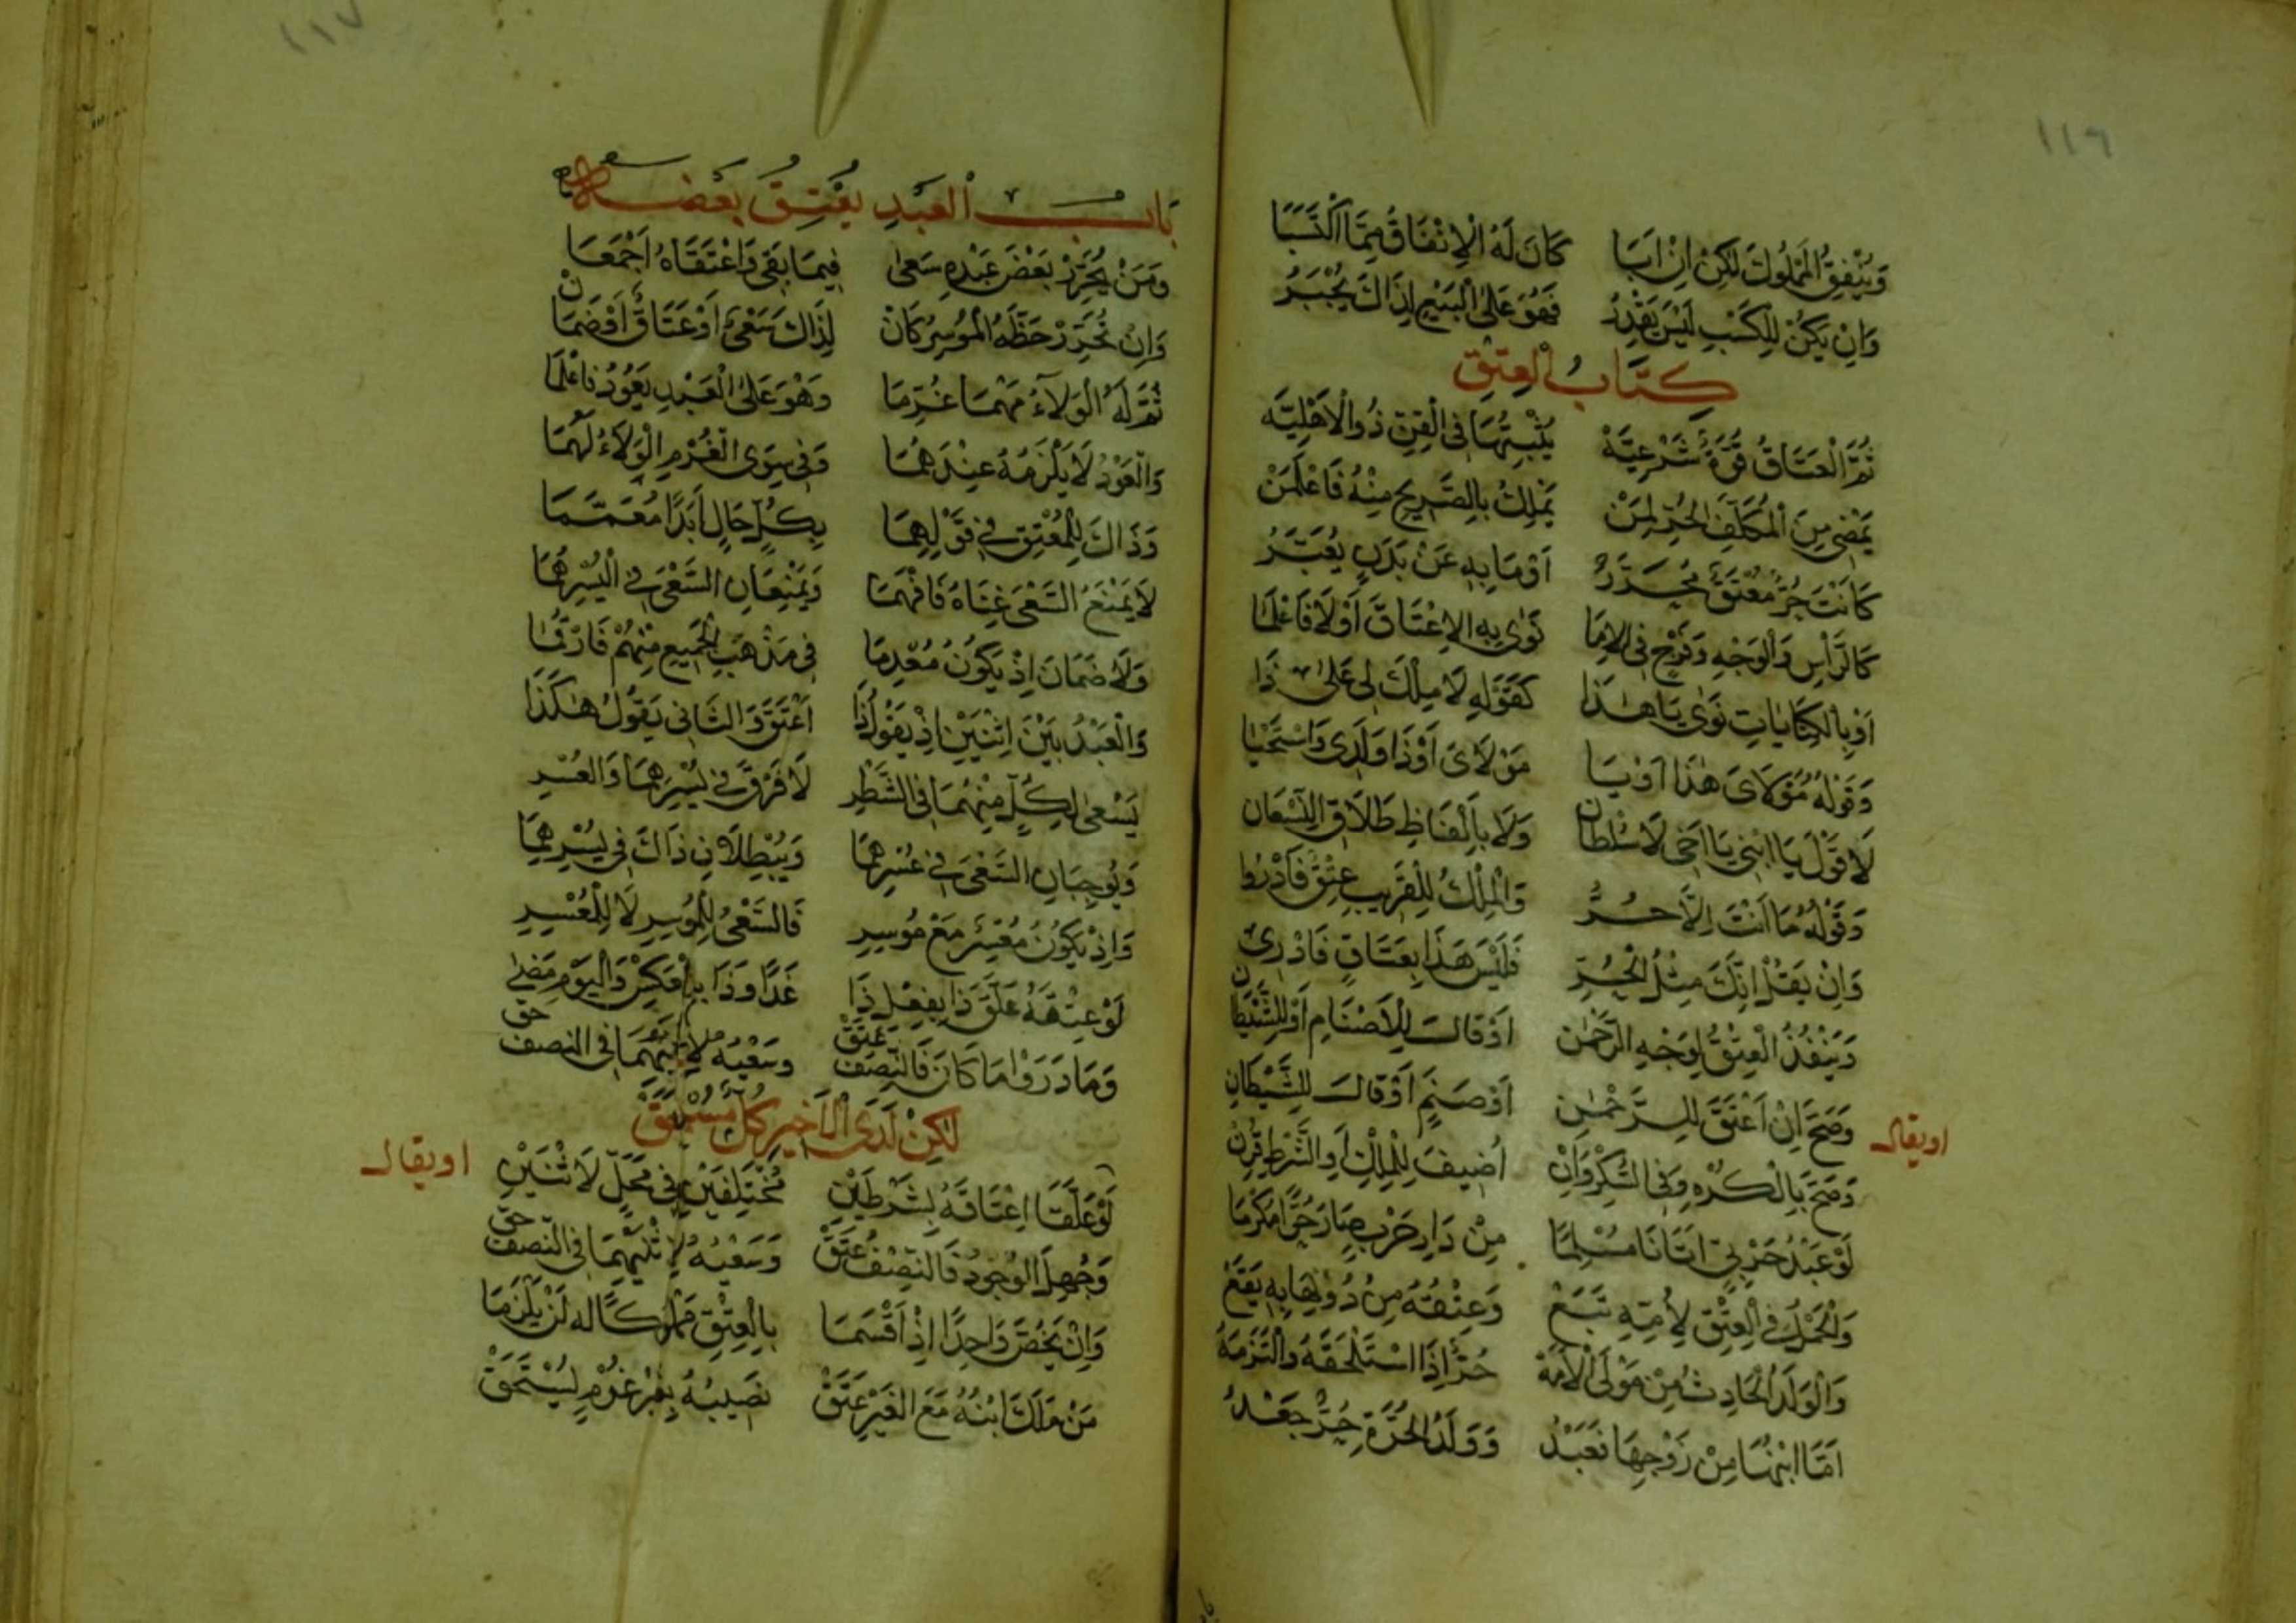 ١١٦
وَيُنْفِقُ الْمَمْلُوكَ لَكِنْ اِنْ اَبَا كَانَ لَهُ الْاِنْفَاقُ مِمَّا اكْتَسَبَا
وَاِنْ يَكُنْ لِلْكَسْبِ لَيْسَ يَقْدِرُ فَهُوَ عَلَى الْبَيْعِ لِذَاكَ يُجْبَرُ
كِتَابُ الْعِتْقِ
ثُمَّ الْعَتَاقُ قُوَّةٌ شَرْعِيَّةْ يُثْبِتُهَا فِى الْقِنِّ ذُو الْاَهْلِيَّه
يَمْضِى مِنَ الْمُكَلَّفِ الْحُرِّ لِمَنْ يَمْلِكُ بِالصَّرِيحِ مِنْهُ فَاعْلَمَنْ
كَانْتَ حُرٌّ مُعْتَقٌ مُحَرَّرُ اَوْ مَا بِهِ عَنْ بَدَنٍ يُعَبَّرُ
كَالرَّأْسِ وَالْوَجْهِ وَفَرْجٍ فِى الْاِمَا نَوٰى بِهِ الْاِعْتَاقَ اَوْ لَا فَاعْلَمَا
اَوْ بِالْكِنَايَاتِ نَوٰى يَا هٰذَا كَقَوْلِهِ لَا مِلْكَ لِى عَلٰى ذَا
وَقَوْلُهُ مَوْلَاىَ هٰذَا اَوْ يَا مَوْلَاىَ اَوْ ذَا وَلَدِى وَاسْتَحْيَا
لَا قَوْلَ يَا ابْنِى يَا اَخِى لَا سُلْطَان وَلَا بِاَلْفَاظِ طَلَاقِ النِّسْوَان
وَقَوْلُهُ مَا اَنْتَ اِلَّا حُرُّ وَالْمِلْكُ لِلْقَرِيبِ عِتْقٌ فَادْرُوا
وَاِنْ يَقُلْ اِنَّكَ مِثْلُ الْحُرِّ فَلَيْسَ هَذَا بِعَتَاقٍ فَادْرِى
وَيَنْفُذُ الْعِتْقُ لِوَجْهِ الرَّحْمٰنِ اَوْ قَالَ لِلْاَصْنَامِ اَوْ لِلشَّيْطَانْ
اويقال وَصَحَّ اِنْ اَعْتَقَ لِلرَّحْمٰنِ اَوْ صَنَمٍ اَوْ قَالَ لِلشَّيْطَانِ
وَصَحَّ بِالْكُرْهِ وَفِى السُّكْرِ وَاِنْ اُضِيفَ لِلْمِلْكِ اَوِ الشَّرْطِ قُرِنْ
لَوْ عَبْدُ حَرْبِىٍّ اَتَانَا مُسْلِمَا مِنْ دَارِ حَرْبٍ صَارَ حُرًّا مُكْرَمَا
وَالْحَمْلُ فِى الْعِتْقِ لِاُمِّهِ تَبَعْ وَعِتْقُهُ مِنْ دُونِهَا بِهِ يَقَعْ
وَالْوَلَدُ الْحَادِثُ مِنْ مَوْلَى الْاَمَهْ حُرٌّ اِذَا اسْتَلْحَقَهُ وَالْتَزَمَهْ
اَمَّا ابْنُهَا مِنْ زَوْجِهَا فَعَبْدُ وَوَلَدُ الْحُرَّةِ حُرٌّ جَعْدُ
١١٧
بَابُ الْعَبْدِ يُعْتَقُ بَعْضُهُ
وَمَنْ يُحَرِّرْ بَعْضَ عَبْدِهِ سَعٰى فِيمَا بَقِى وَاعْتَقَاهُ اَجْمَعَا
وَاِنْ يُحَرِّرْ حَظَّهُ الْمُوسِرُ كَانْ لِذَاكَ سَعْىٌ اَوْ عَتَاقٌ اَوْ ضَمَانْ
ثُمَّ لَهُ الْوَلَاءُ مَهْمَا غُرِّمَا وَهْوَ عَلَى الْعَبْدِ يَعُودُ فَاعْلَمَا
وَالْعَوْدُ لَا يَلْزَمُهُ عِنْدَهُمَا وَفِى سِوَى الْغُرْمِ الْوَلَاءُ لَهُمَا
وَذَاكَ لِلْمُعْتِقِ فِى قَوْلِهِمَا بِكُلِّ حَالٍ اَبَدًا مُعَمَّمَا
لَا يَمْنَعُ السَّعْىَ غِنَاهُ فَافْهَمَا وَيَمْنَعَانِ السَّعْىَ فِى الْيُسْرِ هُمَا
وَلَا ضَمَانَ اِذْ يَكُونُ مُعْدِمَا فِى مَذْهَبِ الْجَمِيعِ مِنْهُمْ
وَالْعَبْدُ بَيْنَ اثْنَيْنِ اِذْ يَقُولُ ذَا اَعْتَقَ وَالثَّانِى يَقُولُ هٰكَذَا
يَسْعٰى لِكُلٍّ مِنْهُمَا فِى الشَّطْرِ لَا فَرْقَ فِى يُسْرِهِمَا وَالْعُسْرِ
وَيُوجِبَانِ السَّعْىَ فِى عُسْرِهِمَا وَيُبْطِلَانِ ذَاكَ فِى يُسْرِهِمَا
وَاِذْ يَكُونُ مُعْسِرٌ مَعْ مُوسِرِ فَالسَّعْىُ لِلْمُوسِرِ لَا لِلْمُعْسِرِ
لَوْ عِتْقَهُ عَلَّقَ ذَا بِفِعْلِ ذَا غَدًا وَذَا بِالْعَكْسِ وَالْيَوْمُ مَضٰى
وَمَا دَرَوْا مَا كَانَ فَالنِّصْفُ عَتَقْ وَسَعْيُهُ لِاثْنَيْهِمَا فِى النِّصْفِ حَقّ
لٰكِنْ لَدَى الْاَخِيرِ كُلٌّ
اويقال لَوْ عَلَّقَا اِعْتَاقَهُ بِشَرْطَيْنِ مُخْتَلِفَيْنِ فِى مَحَلٍّ لَاثْنَيْنِ
وَجُهِلَ الْوُجُودُ فَالنِّصْفُ عَتَقْ وَسَعْيُهُ لِاثْنَيْهِمَا فِى النِّصْفِ حَقّ
وَاِنْ يَخُصَّ وَاحِدًا اِذْ اَقْسَمَا بِالْعِتْقِ مَمْلُوكًا لَهُ لَنْ يَلْزَمَا
مَنْ مَلَكَ ابْنَهُ مَعَ الْغَيْرِ عَتَقْ نَصِيبُهُ بِغَيْرِ غُرْمٍ يُسْتَحَقْ